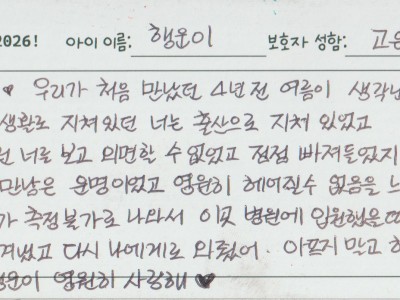 2026! 아이 이름: 행운이 보호자 성함: 고은
♥ 우리가 처음 만났던 4년전 여름이 생각난
생활로 지쳐있던 너는 출산으로 지쳐 있었고
런 너를 보고 외면할 수 없었고 점점 빠져들었지
만남은 운명이었고 영원히 헤어질수 없음을 느
가 측정불가로 나와서 이곳 병원에 입원했을 때
겨냈고 다시 나에게로 와줬어. 아프지 말고 하
운이 영원히 사랑해 ♥